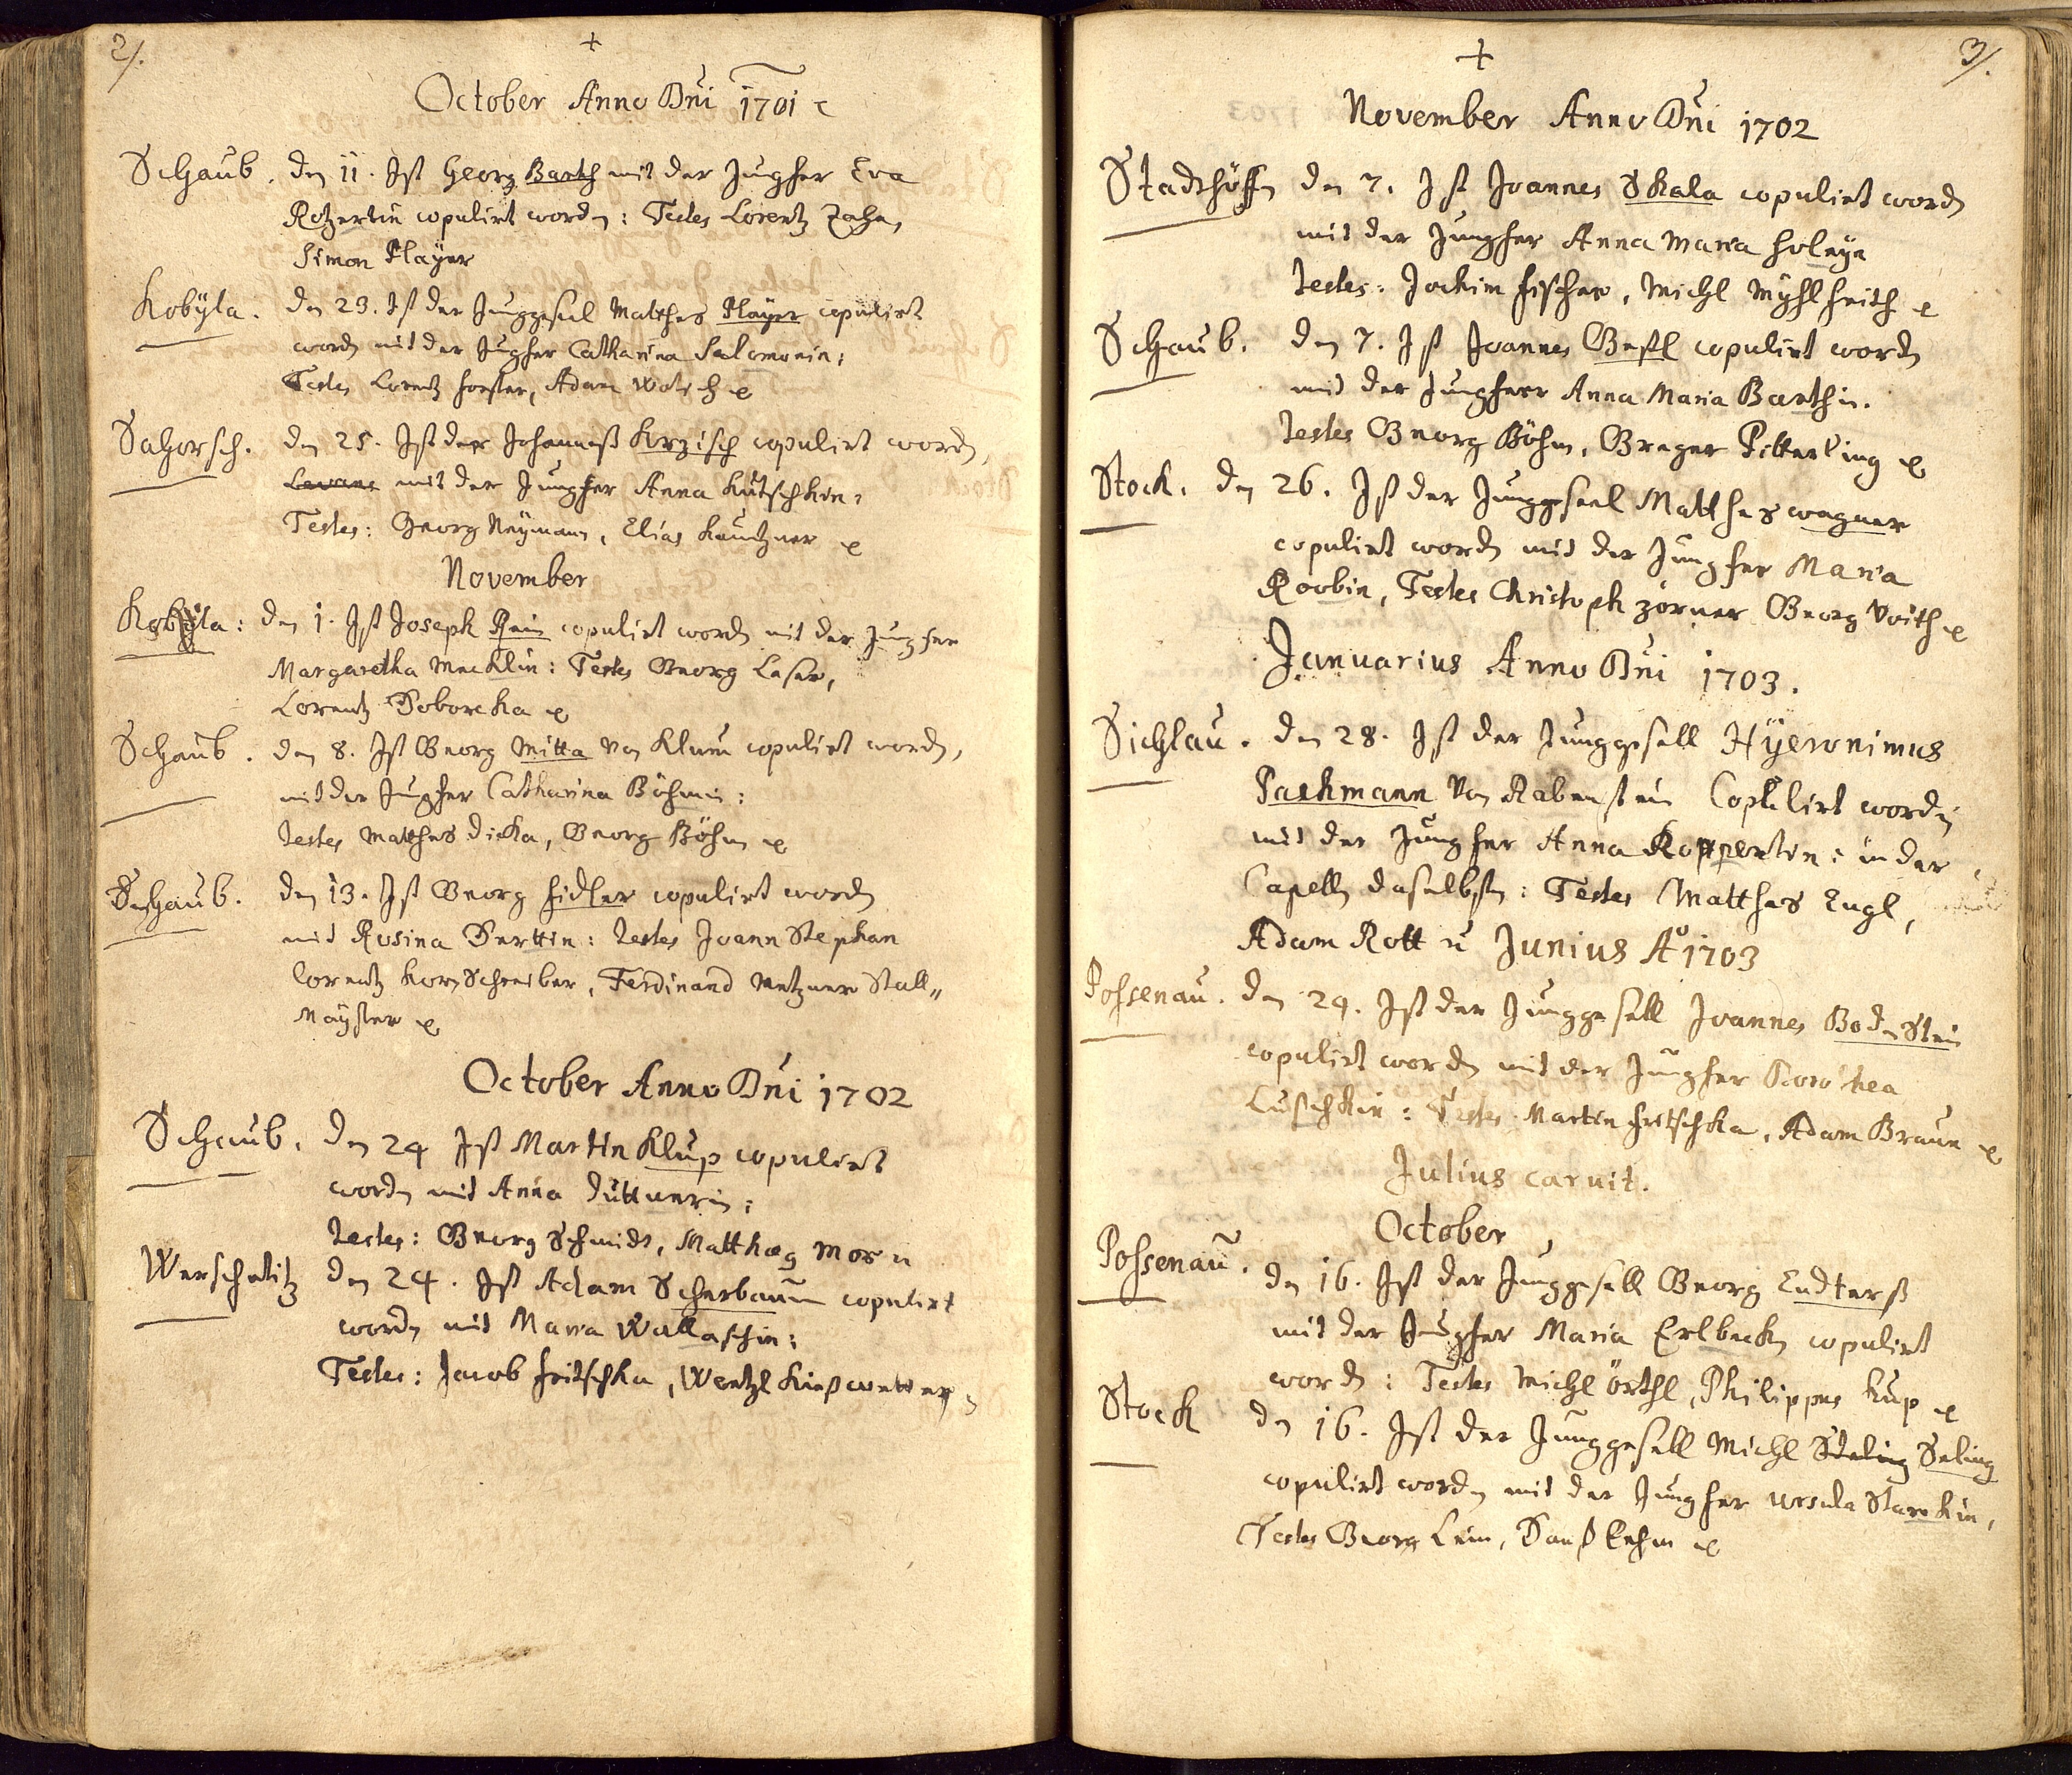 2/.
+
October Anno Dni 1701
Schaub. den 11. Ist Georg Barth mit der Jugfer Eva
Rotzertin copulirt worden: Testes Lorentz Zahn,
Simon Player
Kobÿla. den 23. Ist der Junggesel Matthes Player copulirt
worden mit der Jugfer Catharina Salomonin:
Testes Lorentz Forster, Adam
Sahorsch. den 25. Ist der Johanneß Krzisch copulirt worden,
mit der Jungfer Anna Kutschkin:
Testes: Georg Neÿmann, Elias Kautzner
November
Kobÿla: den 1. Ist Joseph Rein copulirt worden mit der Jungfer
Margaretha Mecklin: Testes Georg Leser,
Lorentz Doboreka
Schaub. den 8. Ist Georg Mitka von Klum copulirt worden,
mit der Jugfer Catharina Böhmin:
testes Matthes Dicka, Georg Böhm
Schaub. den 13. Ist Georg Fidler copulirt worden
mit Rosina Perttin: testes Joann Stephan
Lorentz Kornschreiber, Ferdinand Metzner Stall„
Maÿster
October Anno Dni 1702
Schaub. den 24 Ist Martin Klup copulirt
worden mit Anna Duttnerin:
testes: Georg Schmidt, Matthæg Mos
Werscheditz den 24. Ist Adam Scherbaum copulirt
worden mit Maria Wallaschin:
Testes: Jacob Fritschka, Wentzl
3/.
+
November Anno Dni 1702
Stadthöffen den 7. Ist Joannes Skala copulirt worden
mit der Jungfer Anna Maria Holeya
testes: Jochim Fischer, Michl
Schaub. den 7. Ist Joannes Gestl copulirt worden
mit der Jungferr Anna Maria Barthin.
testes Georg Böhm, Greger Pitterling
Stock. den 26. Ist der Junggesell Matthes Wagner
copulirt worden mit der Jungfer Maria
Roobin, Testes Christoph Zörner Georg Voith
Januarius Anno Dni 1703.
Sichlau. den 28. Ist der Junggesell Hÿeronimus
Pachmann von Rabenstein Copulirt worden
mit der Jungfer Anna Koppertin: in der
Capelln daselbsten: Testes Matthes Engl,
Adam Rott Junius Aº 1703
Possenau. den 24. Ist der Junggesell Joannes Bodenstein
copulirt worden mit der Jungfer Dorothea
Luschkin: Testes Martin Fritschka, Adam Braun
Julius caruit.
October
Possenau. den 16. Ist der Junggesell Georg Endterß
mit der Jugfer Maria Erlbeckin copulirt
worden: Testes Michl Örthl, Philippus Kup
Stock den 16. Ist der Junggesell Michl Steling Seling
copulirt worden mit der Jungfer Ursula Starckin,
Testes Georg Lein, Hanß Lehm